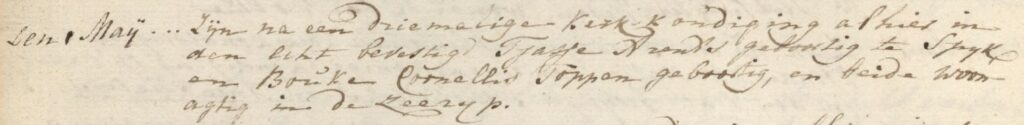 Den 1 Maÿ... Zijn na een driemalige Kerk-kondiging alhier in
den Echt bevestigt Tjasse Arends geboortig te Spyk,
en Bouke Cornellis Toppen geboortig, en beide woon
agtig in de Zeeryp.